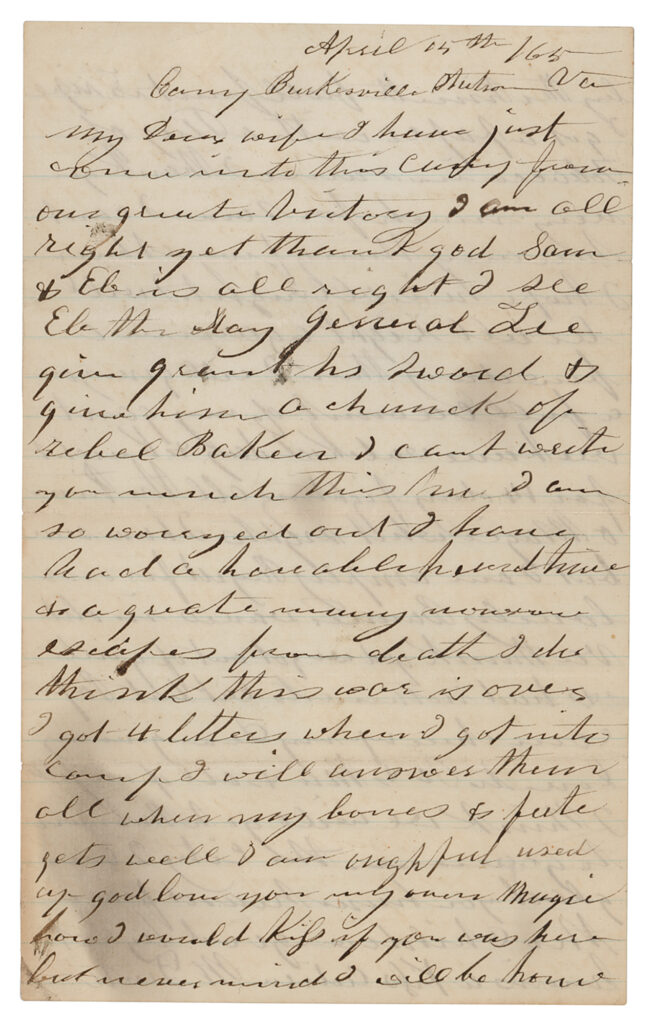 April 15th /65
Camp Burkesville Va
My Dear wife I have just
come into this camp from
our greate victory I am all
right yet thank god Sam
& Eb is all right I see
Eb the day General Lee
give grant his sword &
give him a chunck of
rebel Baken I cant write
you much this time I am
so worryed out I have
had a horable hard time
& a greate many narrow
escapes from death I do
think this war is over
I got 4 letters when I got into
camp I will answer them
all when my bones & feete
gets well I am used
up god love you my own Magie
how I would kiss if you was here
but never mind I will be home